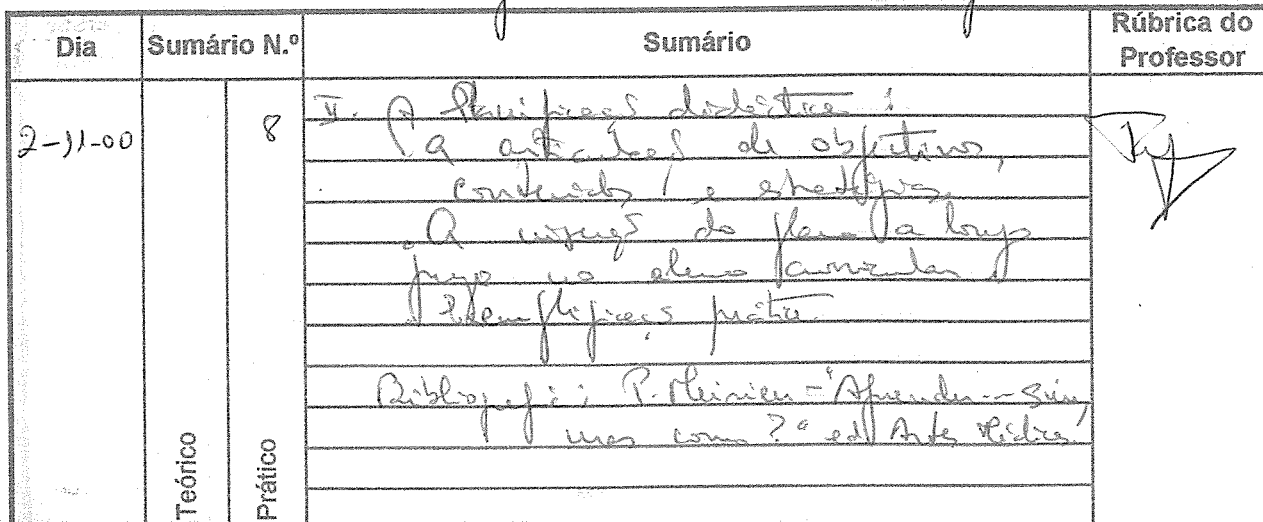 Dia Sumário N.º Sumário Rúbrica do Professor
2-11-00 8 II. A Planificação didáctica:
a articulação de objetivos,
conteúdos e estratégias.
A do plano a longo
prazo no plano curricular.
Exemplificação prática.
Bibliografia: P. Meirieu - "Aprender... Sim,
mas como?" ed Artes Médicas
Teórico
Prático